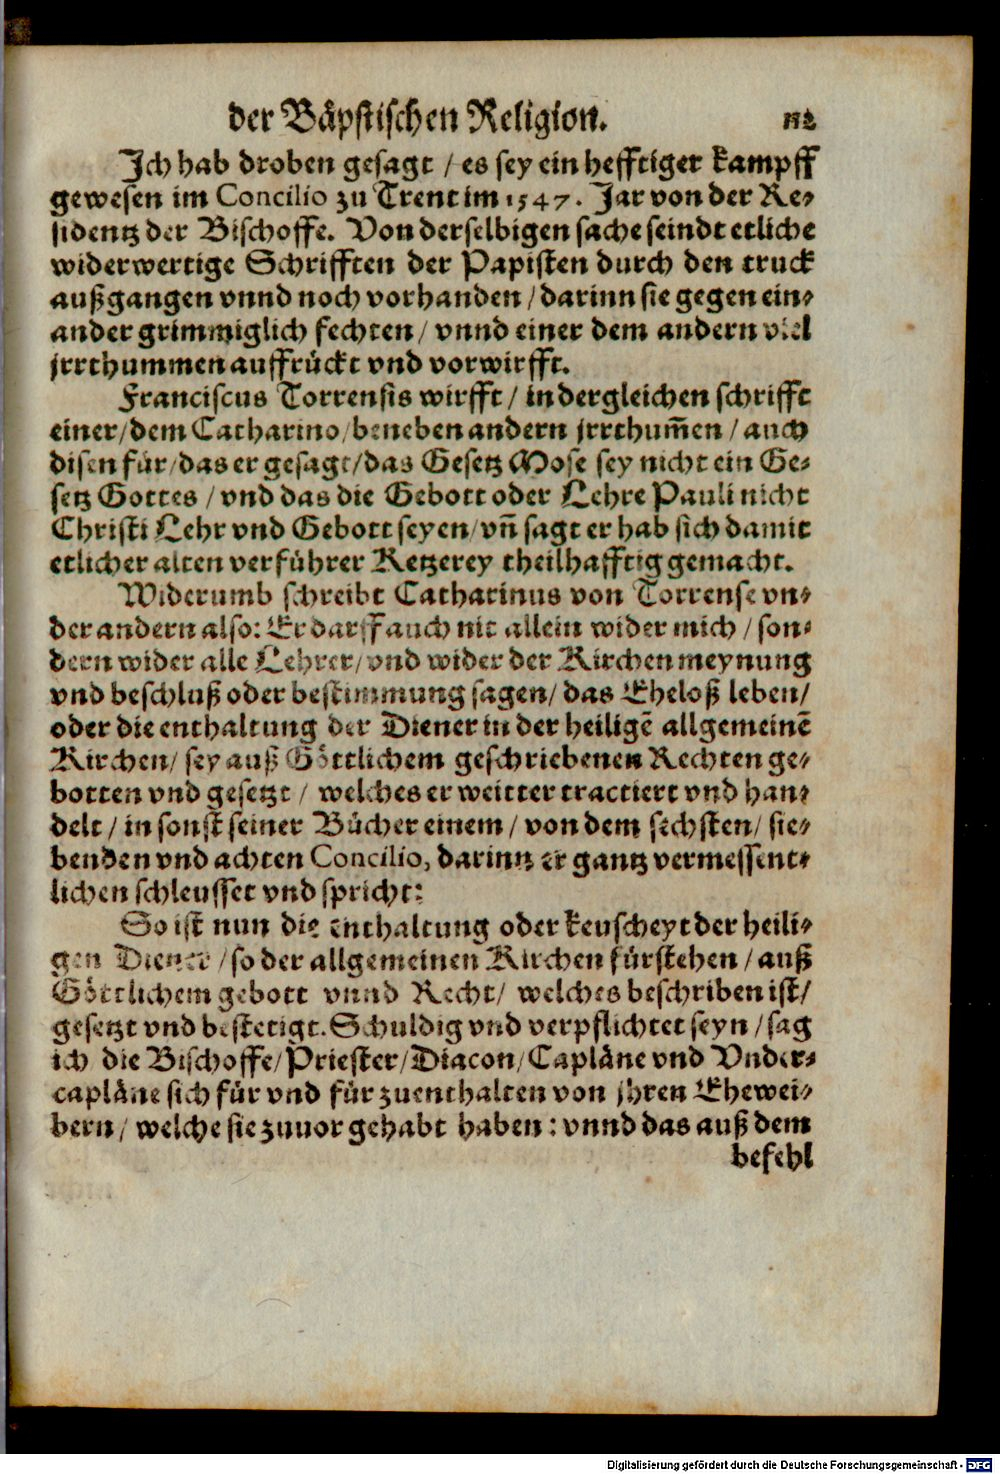 der Bäpstischen Religion. 112
Ich hab droben gesagt / es sey ein hefftiger kampff
gewesen im Concilio zu Trent im 1547. Jar von der Re⸗
sidentz der Bischoffe. Von derselbigen sache seindt etliche
widerwertige Schrifften der Papisten durch den truck
außgangen vnnd noch vorhanden / darinn sie gegen ein⸗
ander grimmiglich fechten / vnnd einer dem andern viel
jrrthummen auffrückt vnd vorwirfft.
Franciscus Torrensis wirfft / in dergleichen schrifft
einer / dem Catharino / beneben andern jrrthum̄en / auch
disen für / das er gesagt / das Gesetz Mose sey nicht ein Ge⸗
setz Gottes / vnd das die Gebott oder Lehre Pauli nicht
Christi Lehr vnd Gebott seyen / vn̄ sagt er hab sich damit
etlicher alten verführer Ketzerey theilhafftig gemacht.
Widerumb schreibt Catharinus von Torrense vn⸗
der andern also: Er darff auch nit allein wider mich / son⸗
dern wider alle Lehrer / vnd wider der Kirchen meynung
vnd beschluß oder bestimmung sagen / das Eheloß leben /
oder die enthaltung der Diener in der heiligē allgemeinē
Kirchen / sey auß Göttlichem geschriebenen Rechten ge⸗
botten vnd gesetzt / welches er weitter tractiert vnd han⸗
delt / in sonst seiner Bücher einem / von dem sechsten / sie⸗
benden vnd achten Concilio, darintz er gantz vermessent⸗
lichen schleusset vnd spricht:
So ist nun die enthaltung oder keuscheyt der heili⸗
gen Diener / so der allgemeinen Kirchen fürstehen / auß
Göttlichem gebott vnnd Recht / welches beschriben ist /
gesetzt vnd bestetigt. Schuldig vnd verpflichtet seyn / sag
ich die Bischoffe / Priester / Diacon / Capläne vnd Vnder⸗
capläne sich für vnd für zuenthalten von jhren Ehewei⸗
bern / welche sie zuuor gehabt haben : vnnd das auß dem
befehl
Digitalisierung gefördert durch die Deutsche Forschungsgemeinschaft - DFG